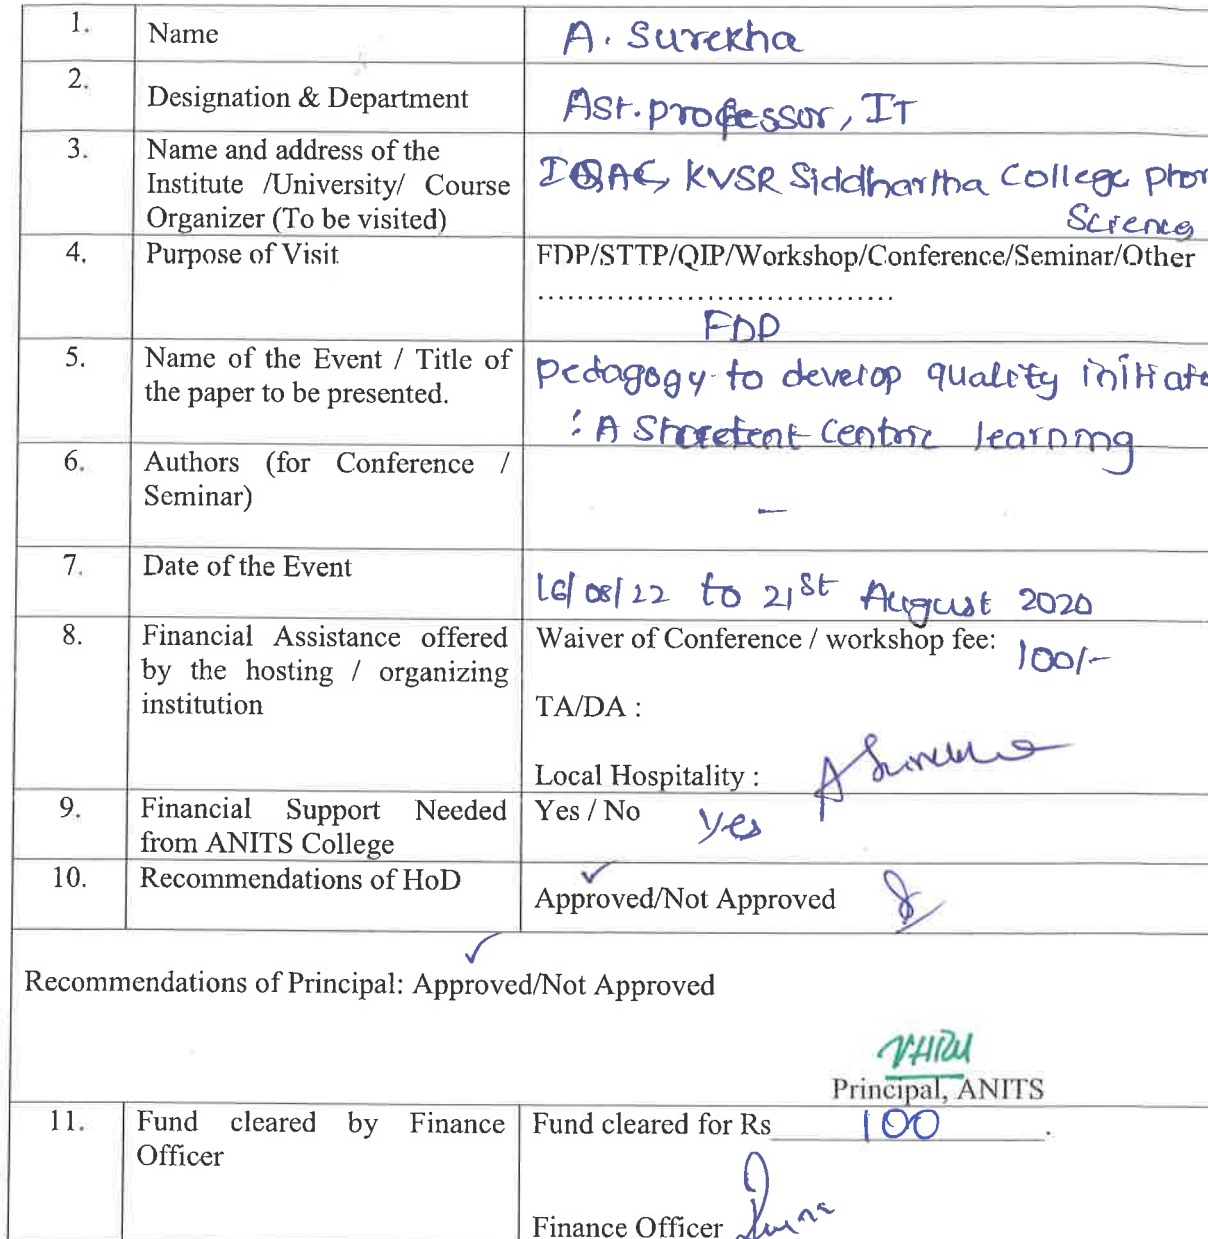 1. Name A. Surekha
2. Designation & Department Ast. professor, IT
3. Name and address of the Institute /University/ Course Organizer (To be visited)
IQAC, KVSR Siddhartha College
Science
4. Purpose of Visit FDP/STTP/QIP/Workshop/Conference/Seminar/Other
....................................
FDP
5. Name of the Event / Title of the paper to be presented.
pedagogy to develop quality
: A Centric learning
6. Authors (for Conference / Seminar)
-
7. Date of the Event 16/08/22 to 21st August 2020
8. Financial Assistance offered by the hosting / organizing institution
Waiver of Conference / workshop fee: 100/-
TA/DA :
Local Hospitality : A Surekha
9. Financial Support Needed from ANITS College
Yes / No yes
10. Recommendations of HoD Approved/Not Approved
Recommendations of Principal: Approved/Not Approved
Principal, ANITS
11. Fund cleared by Finance Officer
Fund cleared for Rs 100.
Finance Officer